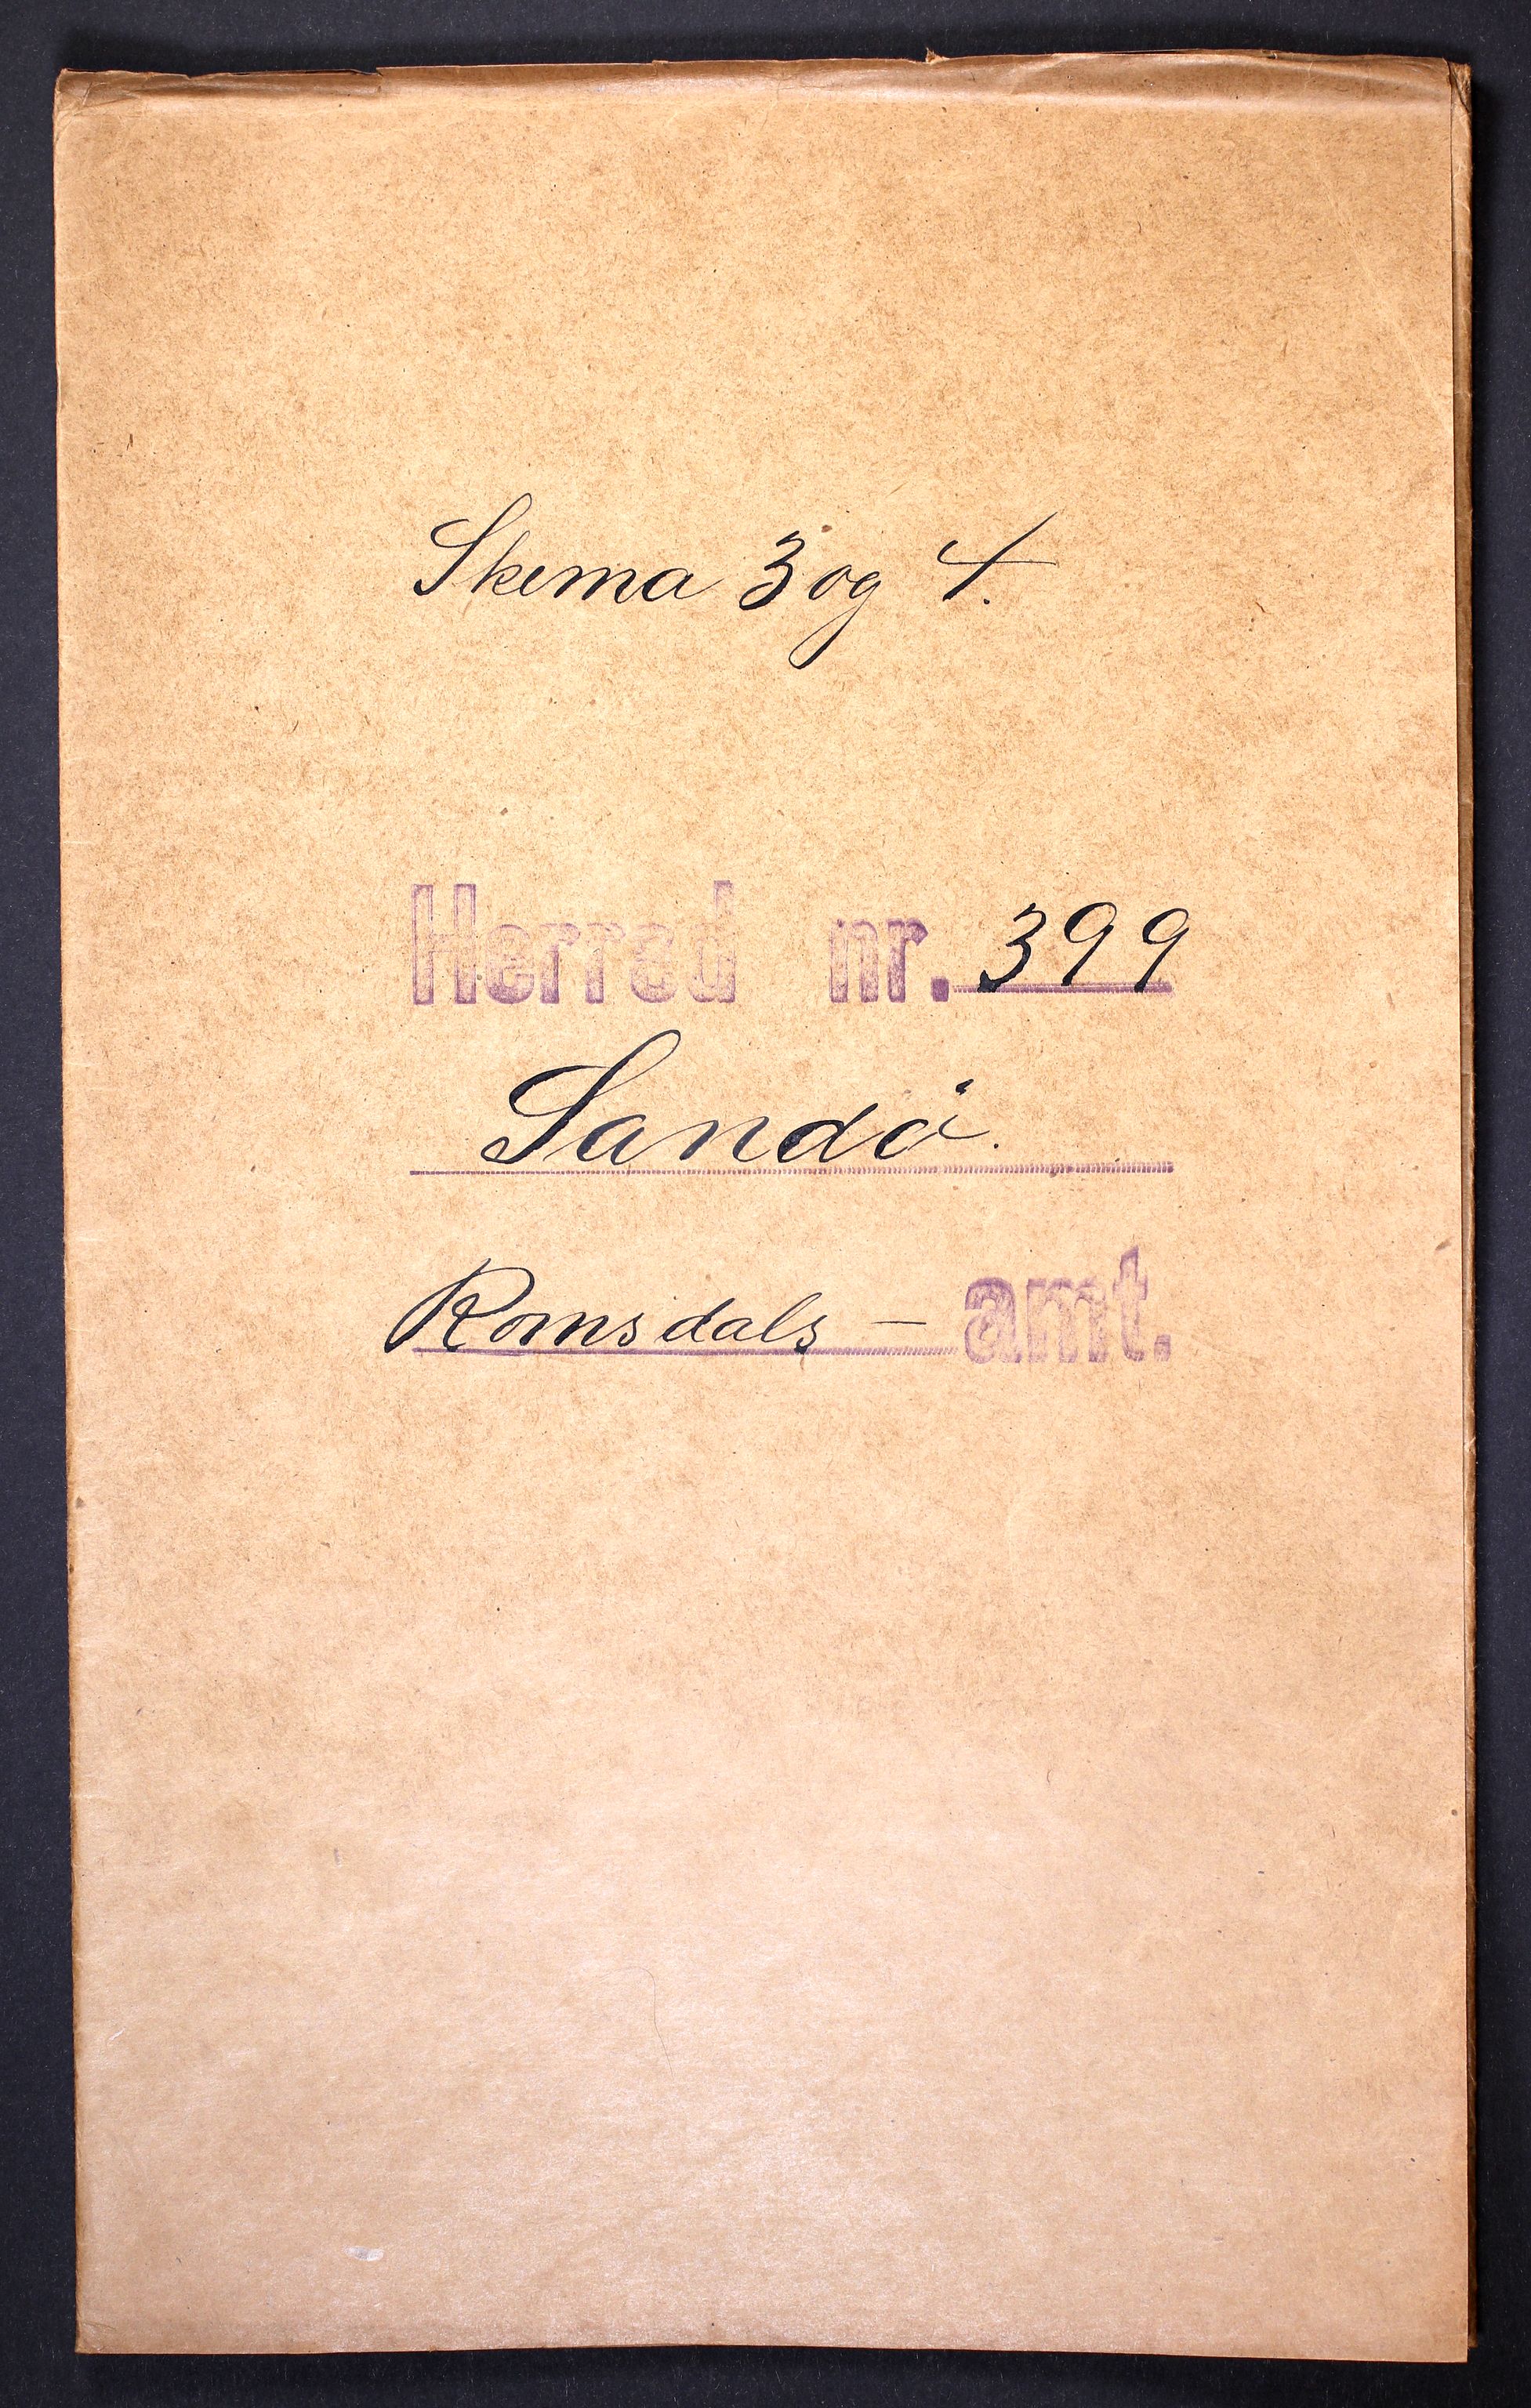 Skema 3 og 4.
Herred nr. 399
Sandö.
Romsdals - amt.